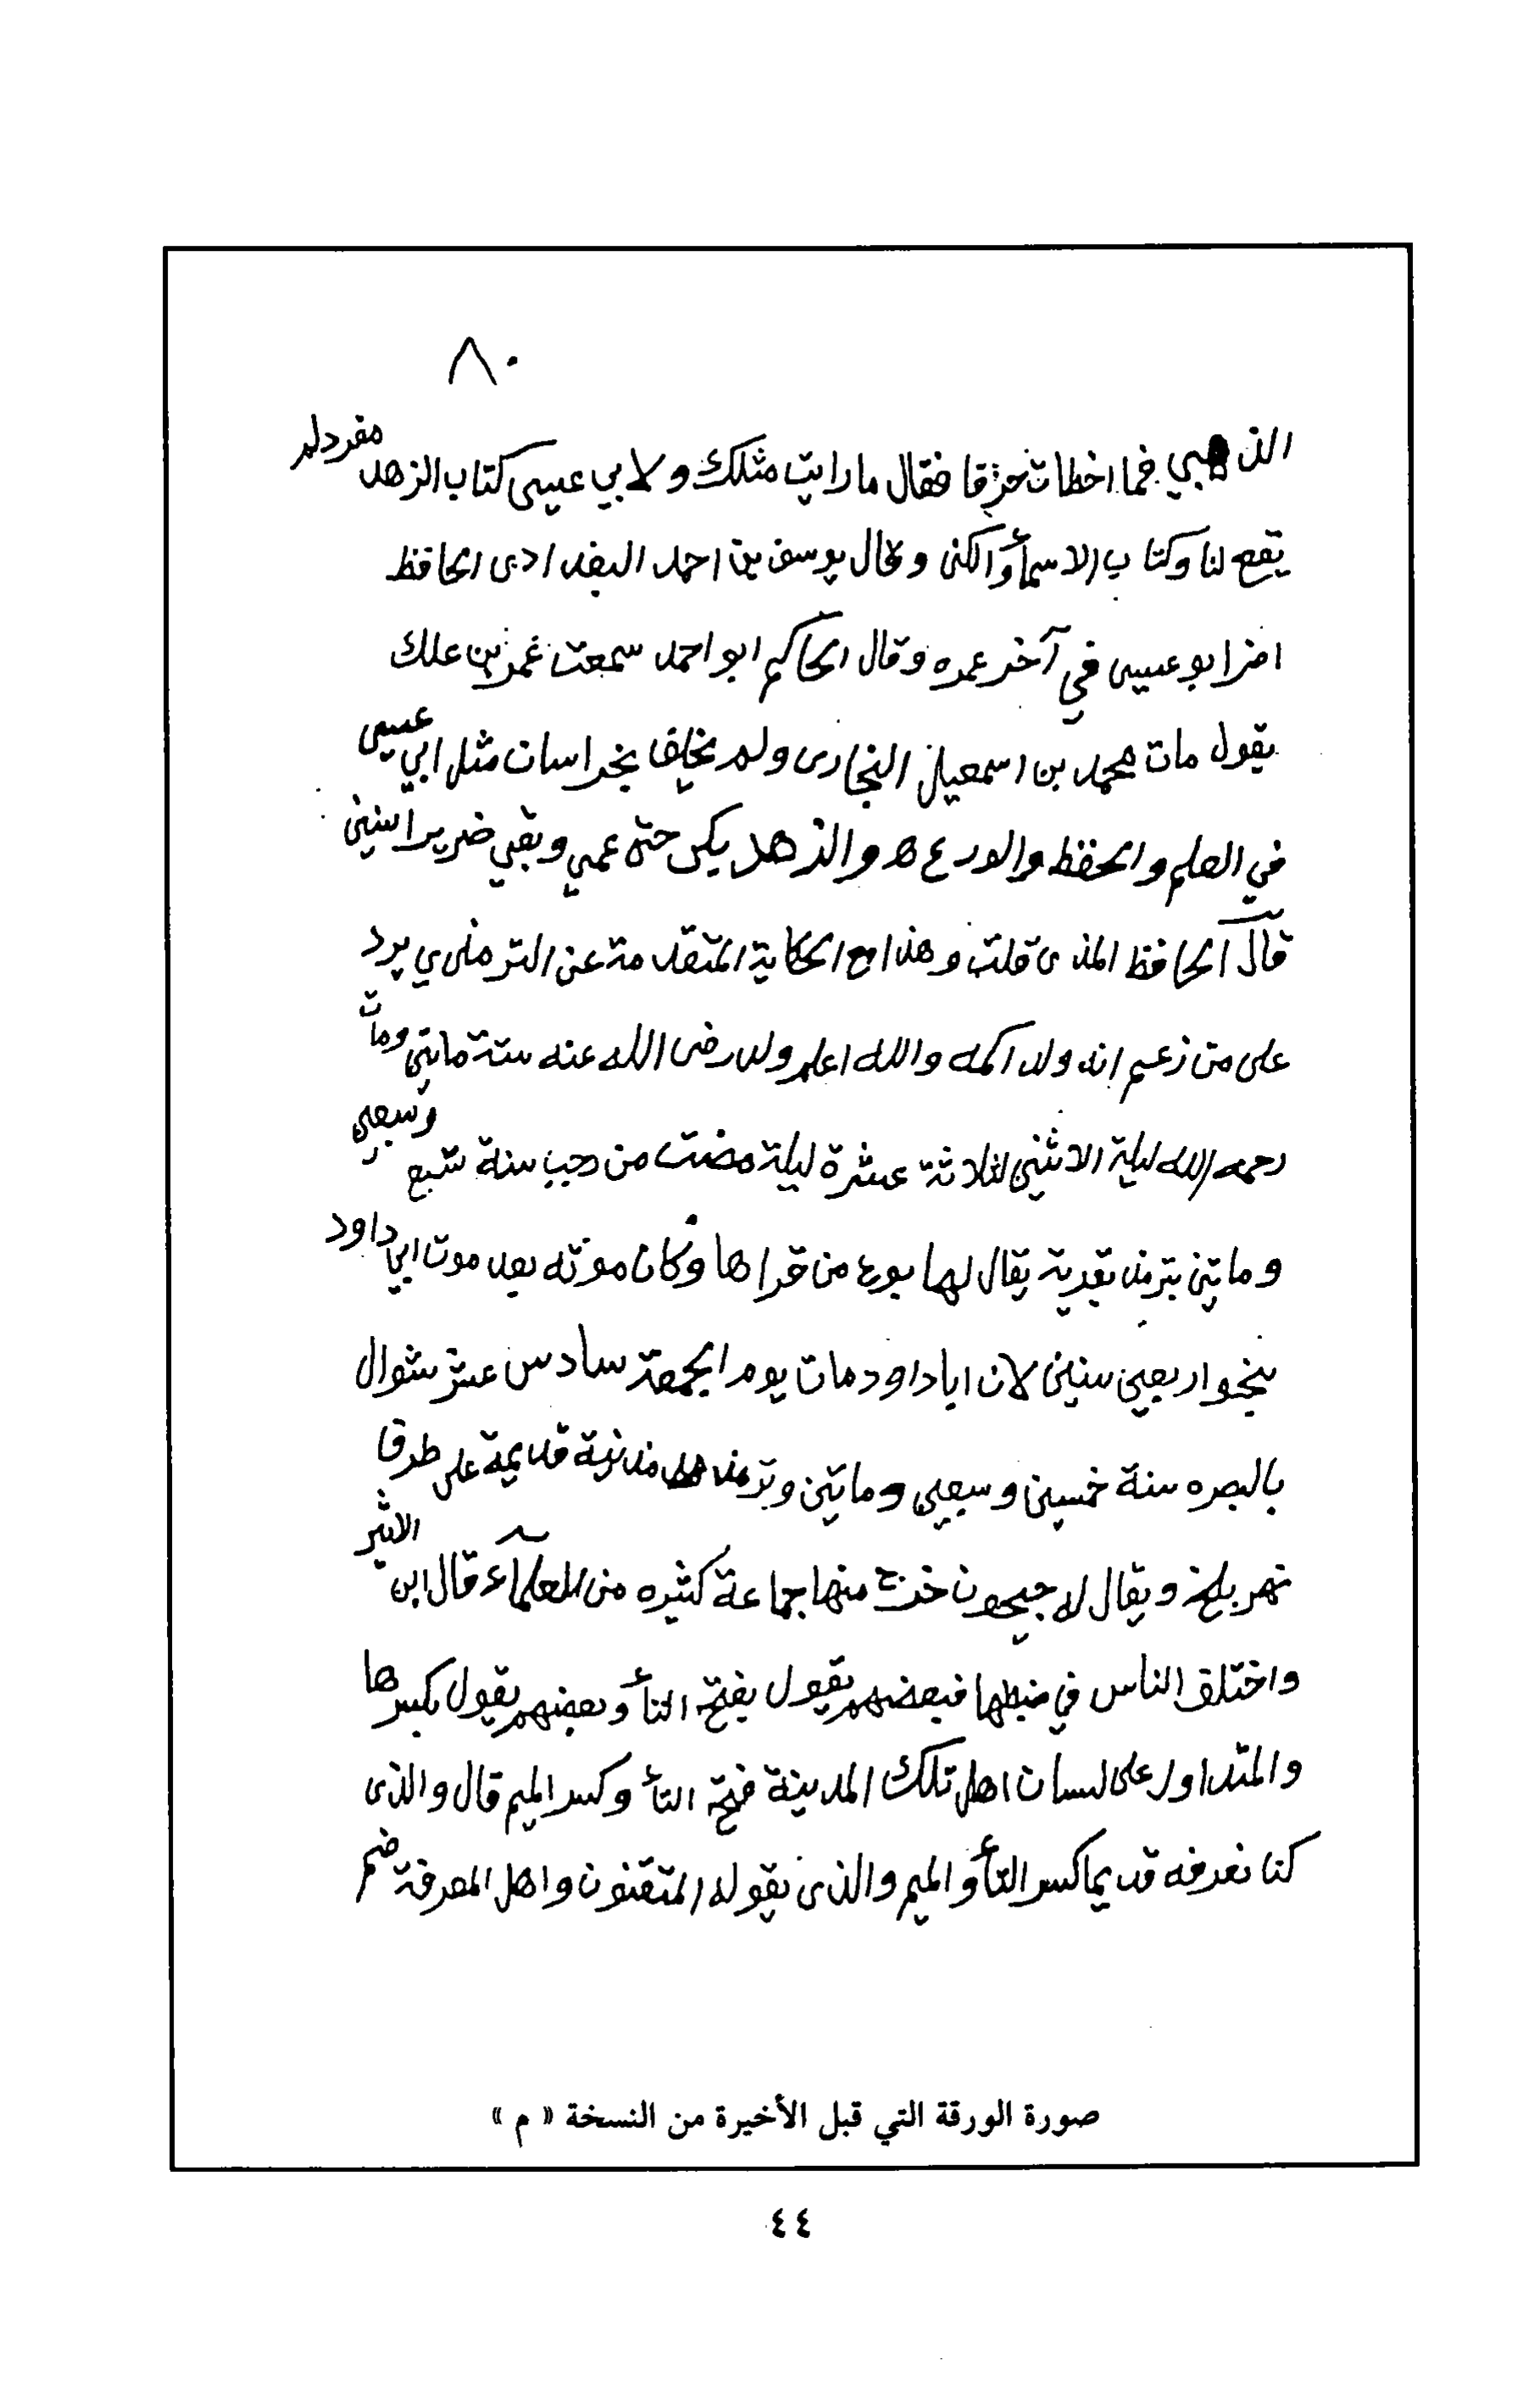 ٨٠
الذهبي فما اخطات حرفا فقال ما رايت مثلك ولابي عيسى كتاب الزهد مفرد لم
يقع لنا وكتاب الاسمأ والكنى وقال يوسف بن احمد البغدادى الحافظ
اضر ابو عيسى في آخر عمره وقال الحاكم ابو احمد سمعت عمر بن علك
يقول مات محمد بن اسمعيل البخارى ولم يخلف بخراسان مثل ابي عيسى
في العلم والحفظ والورع والزهد بكى حتى عمي وبقي ضريرا سنين
قال الحافظ المذى قلت وهذا مع الحكاية المتقدمة عن الترمذي يرد
على من زعم انه ولد اكمه والله اعلم ولد رضى الله عنه سنة مايتي ومات
رحمه الله ليلة الاثنين لثلاثة عشرة ليلة مضت من رجب سنة تسع وسبعين
ومايتن بترمذ بقرية يقال لها بوغ من قراها وكان موته بعد موت ابي داود
بنحو اربعين سنين لان ابا داود مات يوم الجمعة سادس عشر شوال
بالبصره سنة خمسين وسبعين ومايتن وترمذ مدينة قديمة على طرف
نهر بلخ ويقال له جيحون خرج منها جماعة كثيره من العلمآء قال ابن الاثير
واختلف الناس في ضبطها فبعضهم يقول بفتح التأ وبعضهم يقول بكسرها
والمتداول على لسان اهل تلك المدينة فتح التأ وكسر الميم قال والذى
كنا نعرفه قديما كسر التأ والميم والذى يقوله المتقنون واهل المعرفة ضم
صورة الورقة التي قبل الأخيرة من النسخة « م »
٤٤